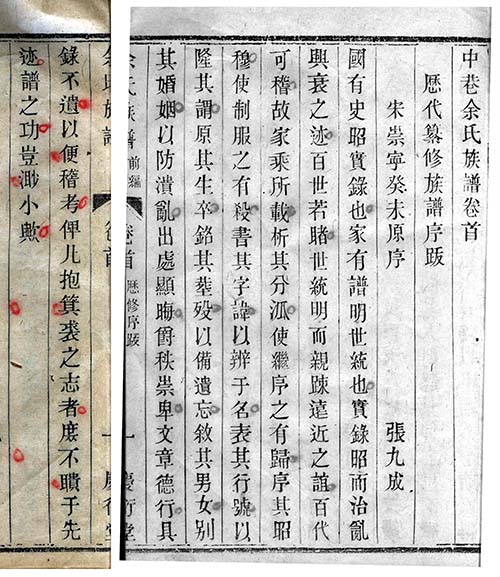 中巷余氏族譜卷首
歷代纂修族譜序跋
宋崇寧癸未原序
張九成
國有史昭實錄也家有譜明世統也實錄昭而治亂
興衰之迹百世若睹世統明而親踈遠近之誼百代
可稽故家乘所載析其分派使繼序之有歸序其昭
穆使制服之有殺書其字諱以辨于名表其行號以
隆其謂原其生卒銘其塟歿以備遺忘敘其男女別
其婚姻以防瀆亂出處顯晦爵秩崇卑文章德行具
余氏族譜 前編 卷首 歷修序跋 一 慶衍堂
余氏族譜 卷首 一 慶衍堂
錄不遺以便稽考俾凡抱箕裘之志者庶不聵于先
迹譜之功豈渺小歟